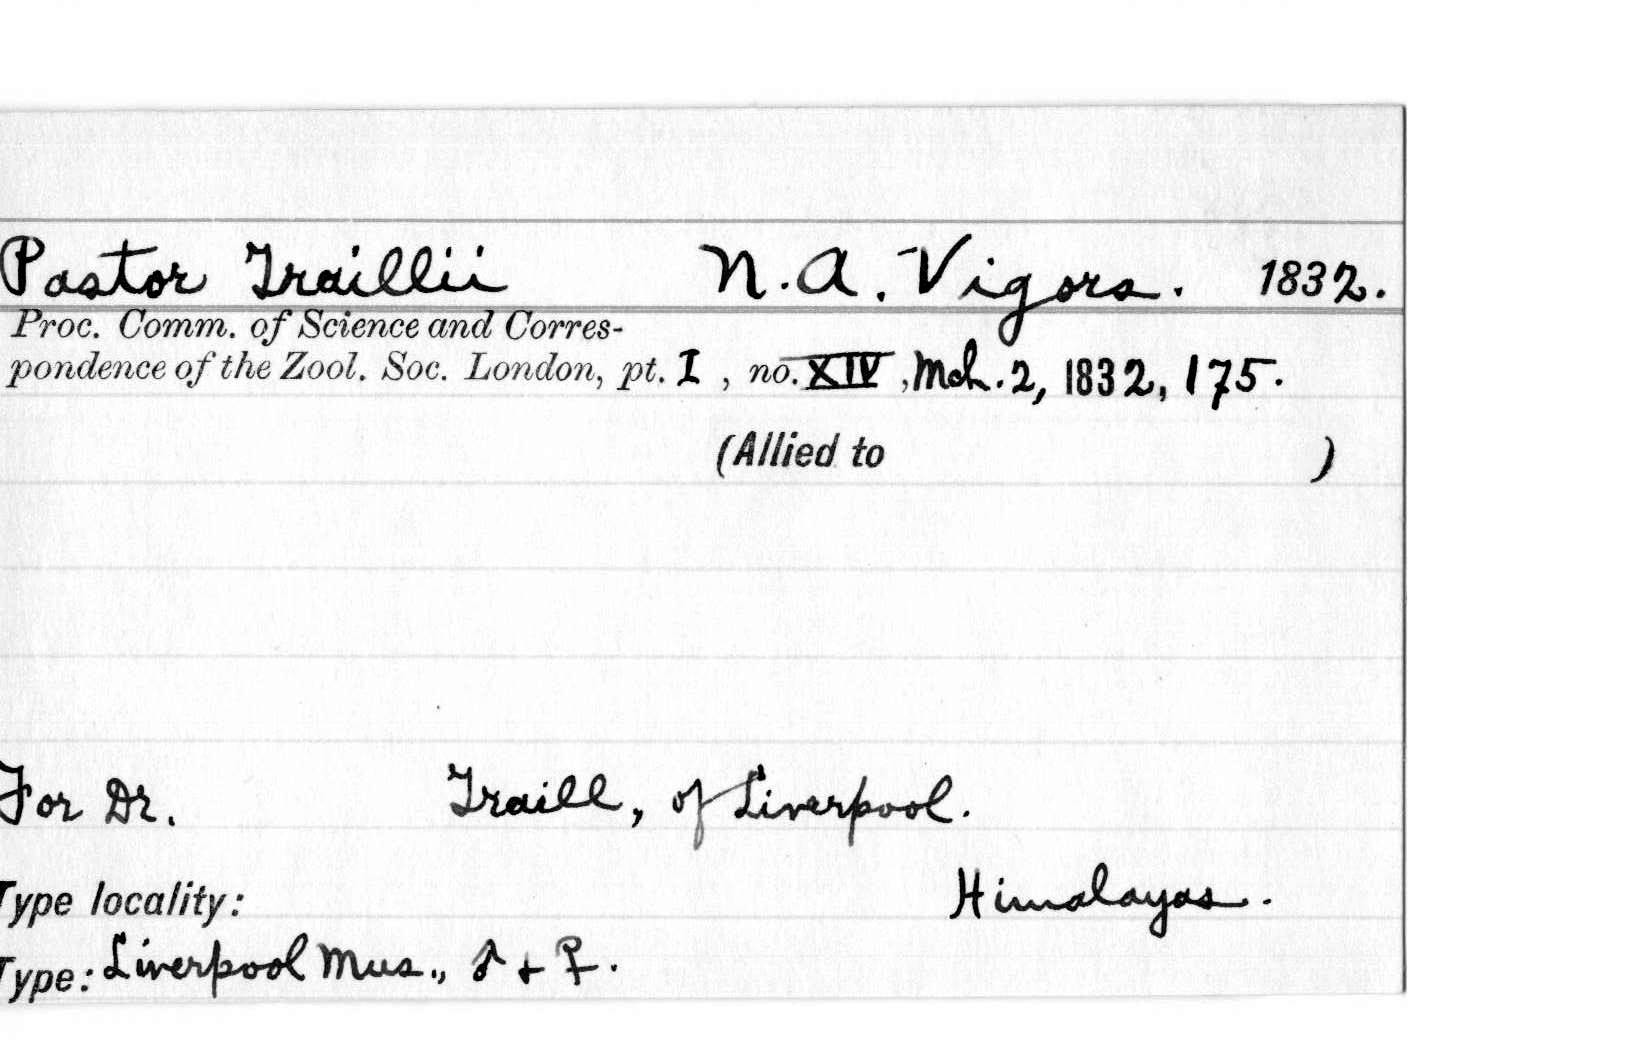 Pastor Traillii N. A. Vigors. 1832.
Proc. Comm. of Science and Corres-
pondence of the Zool. Soc. London, pt. I , no. XIV , Mch. 2, 1832, 175.
(Allied to )
For Dr. Traill, of Liverpool.
Type locality: Himalayas.
Type: Liverpool Mus., ♂ + ♀.